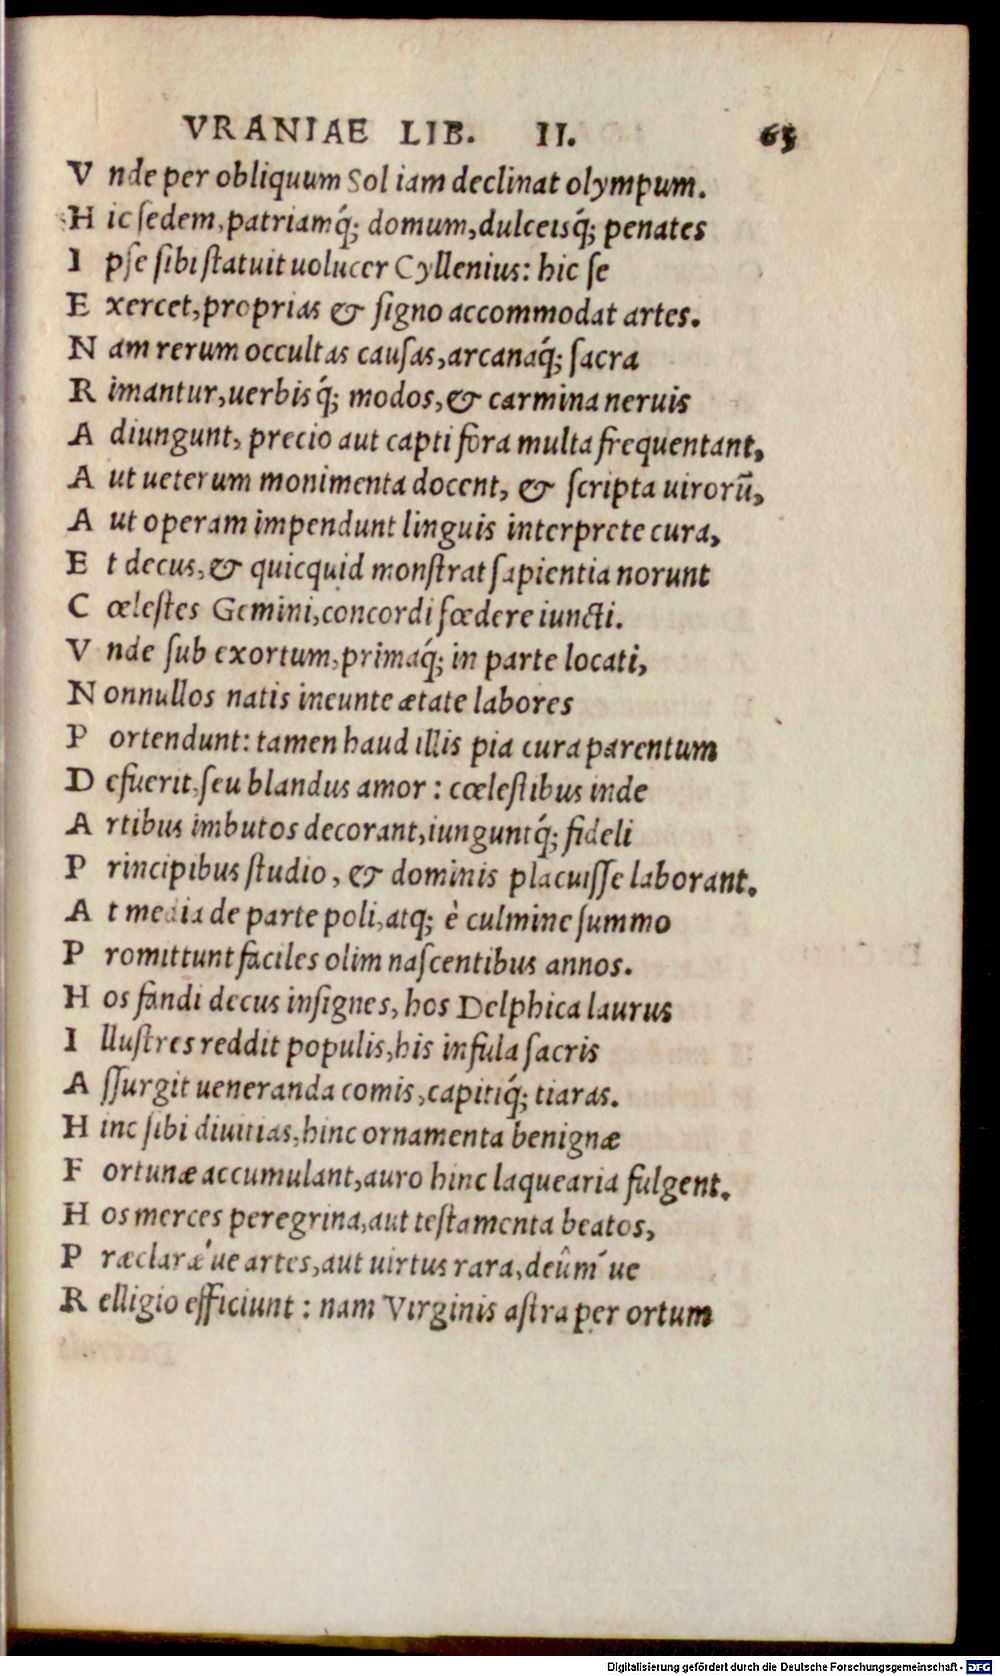 VRANIAE LIB. II. 65
V nde per obliquum Sol iam declinat olympum.
H ic ſedem, patriamq́; domum, dulceisq́; penates
I pſe ſibi ſtatuit uolucer Cyllenius: hic ſe
E xercet, proprias & ſigno accommodat artes.
N am rerum occultas cauſas, arcanaq́; ſacra
R imantur, uerbisq́; modos, & carmina neruis
A diungunt, precio aut capti fora multa frequentant,
A ut ueterum monimenta docent, & ſcripta uirorū,
A ut operam impendunt linguis interprete cura,
E t decus, & quicquid monſtrat ſapientia norunt
C œleſtes Gemini, concordi fœdere iuncti.
V nde ſub exortum, primaq́; in parte locati,
N onnullos natis ineunte ætate labores
P ortendunt: tamen haud illis pia cura parentum
D efuerit, ſeu blandus amor: cœleſtibus inde
A rtibus imbutos decorant, iunguntq́; fideli
P rincipibus ſtudio, & dominis placuiſſe laborant.
A t media de parte poli, atq; è culmine ſummo
P romittunt faciles olim naſcentibus annos.
H os fandi decus inſignes, hos Delphica laurus
I lluſtres reddit populis, his infula ſacris
A ſſurgit ueneranda comis, capitiq́; tiaras.
H inc ſibi diuitias, hinc ornamenta benignæ
F ortunæ accumulant, auro hinc laquearia fulgent.
H os merces peregrina, aut teſtamenta beatos,
P ræclaræ' ue artes, aut uirtus rara, deûm' ue
R elligio efficiunt: nam Virginis aſtra per ortum
Digitalisierung gefördert durch die Deutsche Forschungsgemeinschaft - DFG